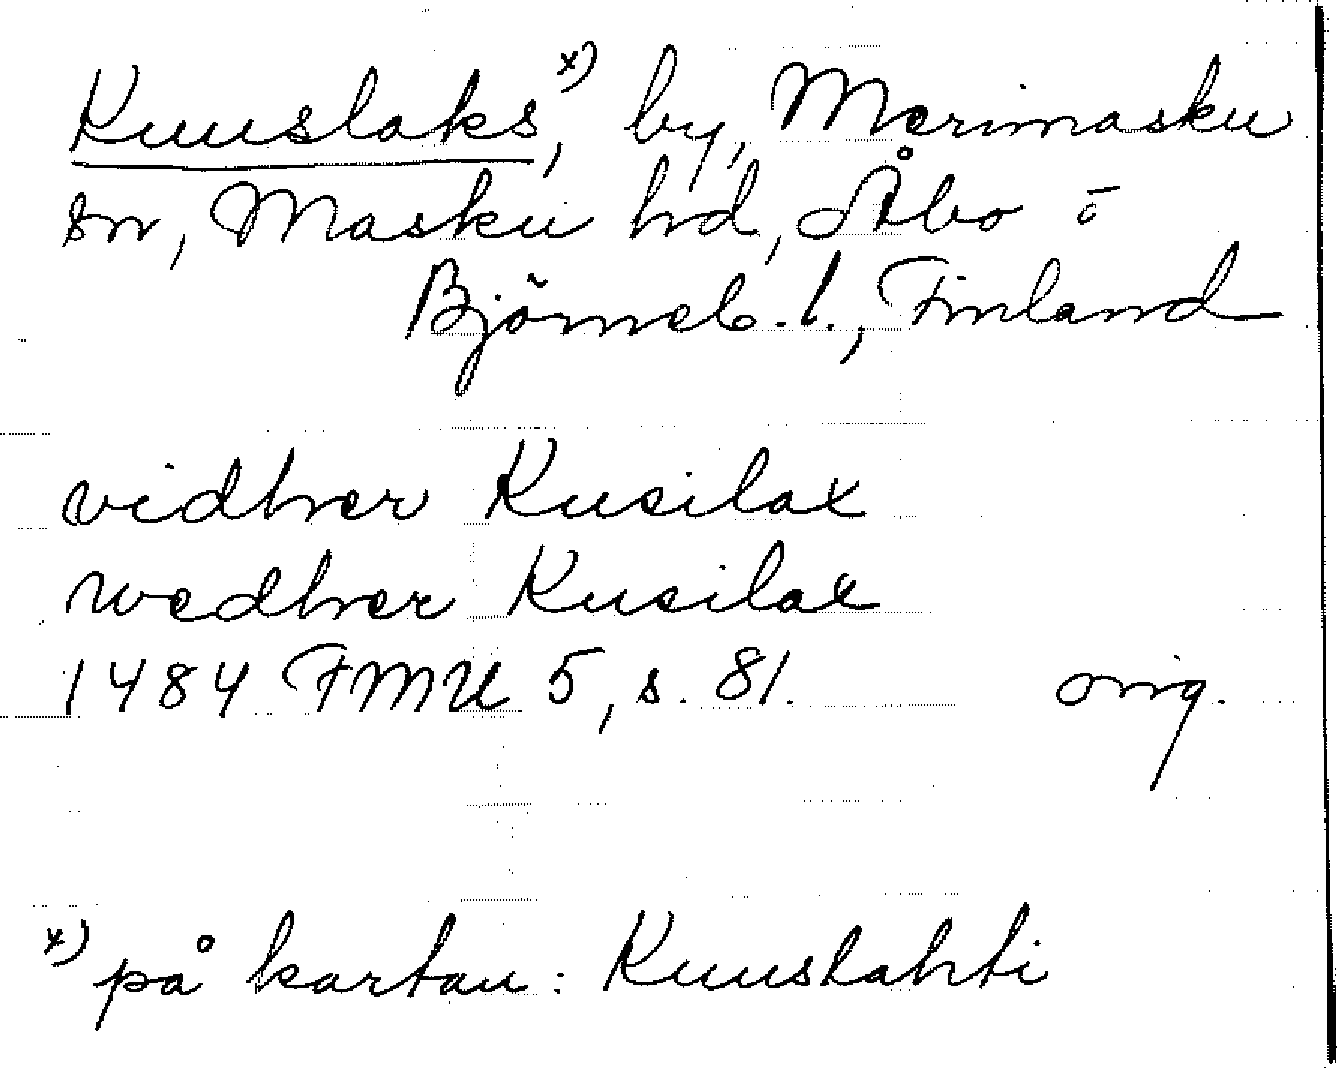 Kuuslaks,x) by, Merimasku
sn, Masku hd, Åbo o
Björneb. l., Finland
vidher Kusilax
wedher Kusilax
1484 FMU 5, s. 81. orig.
x) på kartan: Kuuslahti